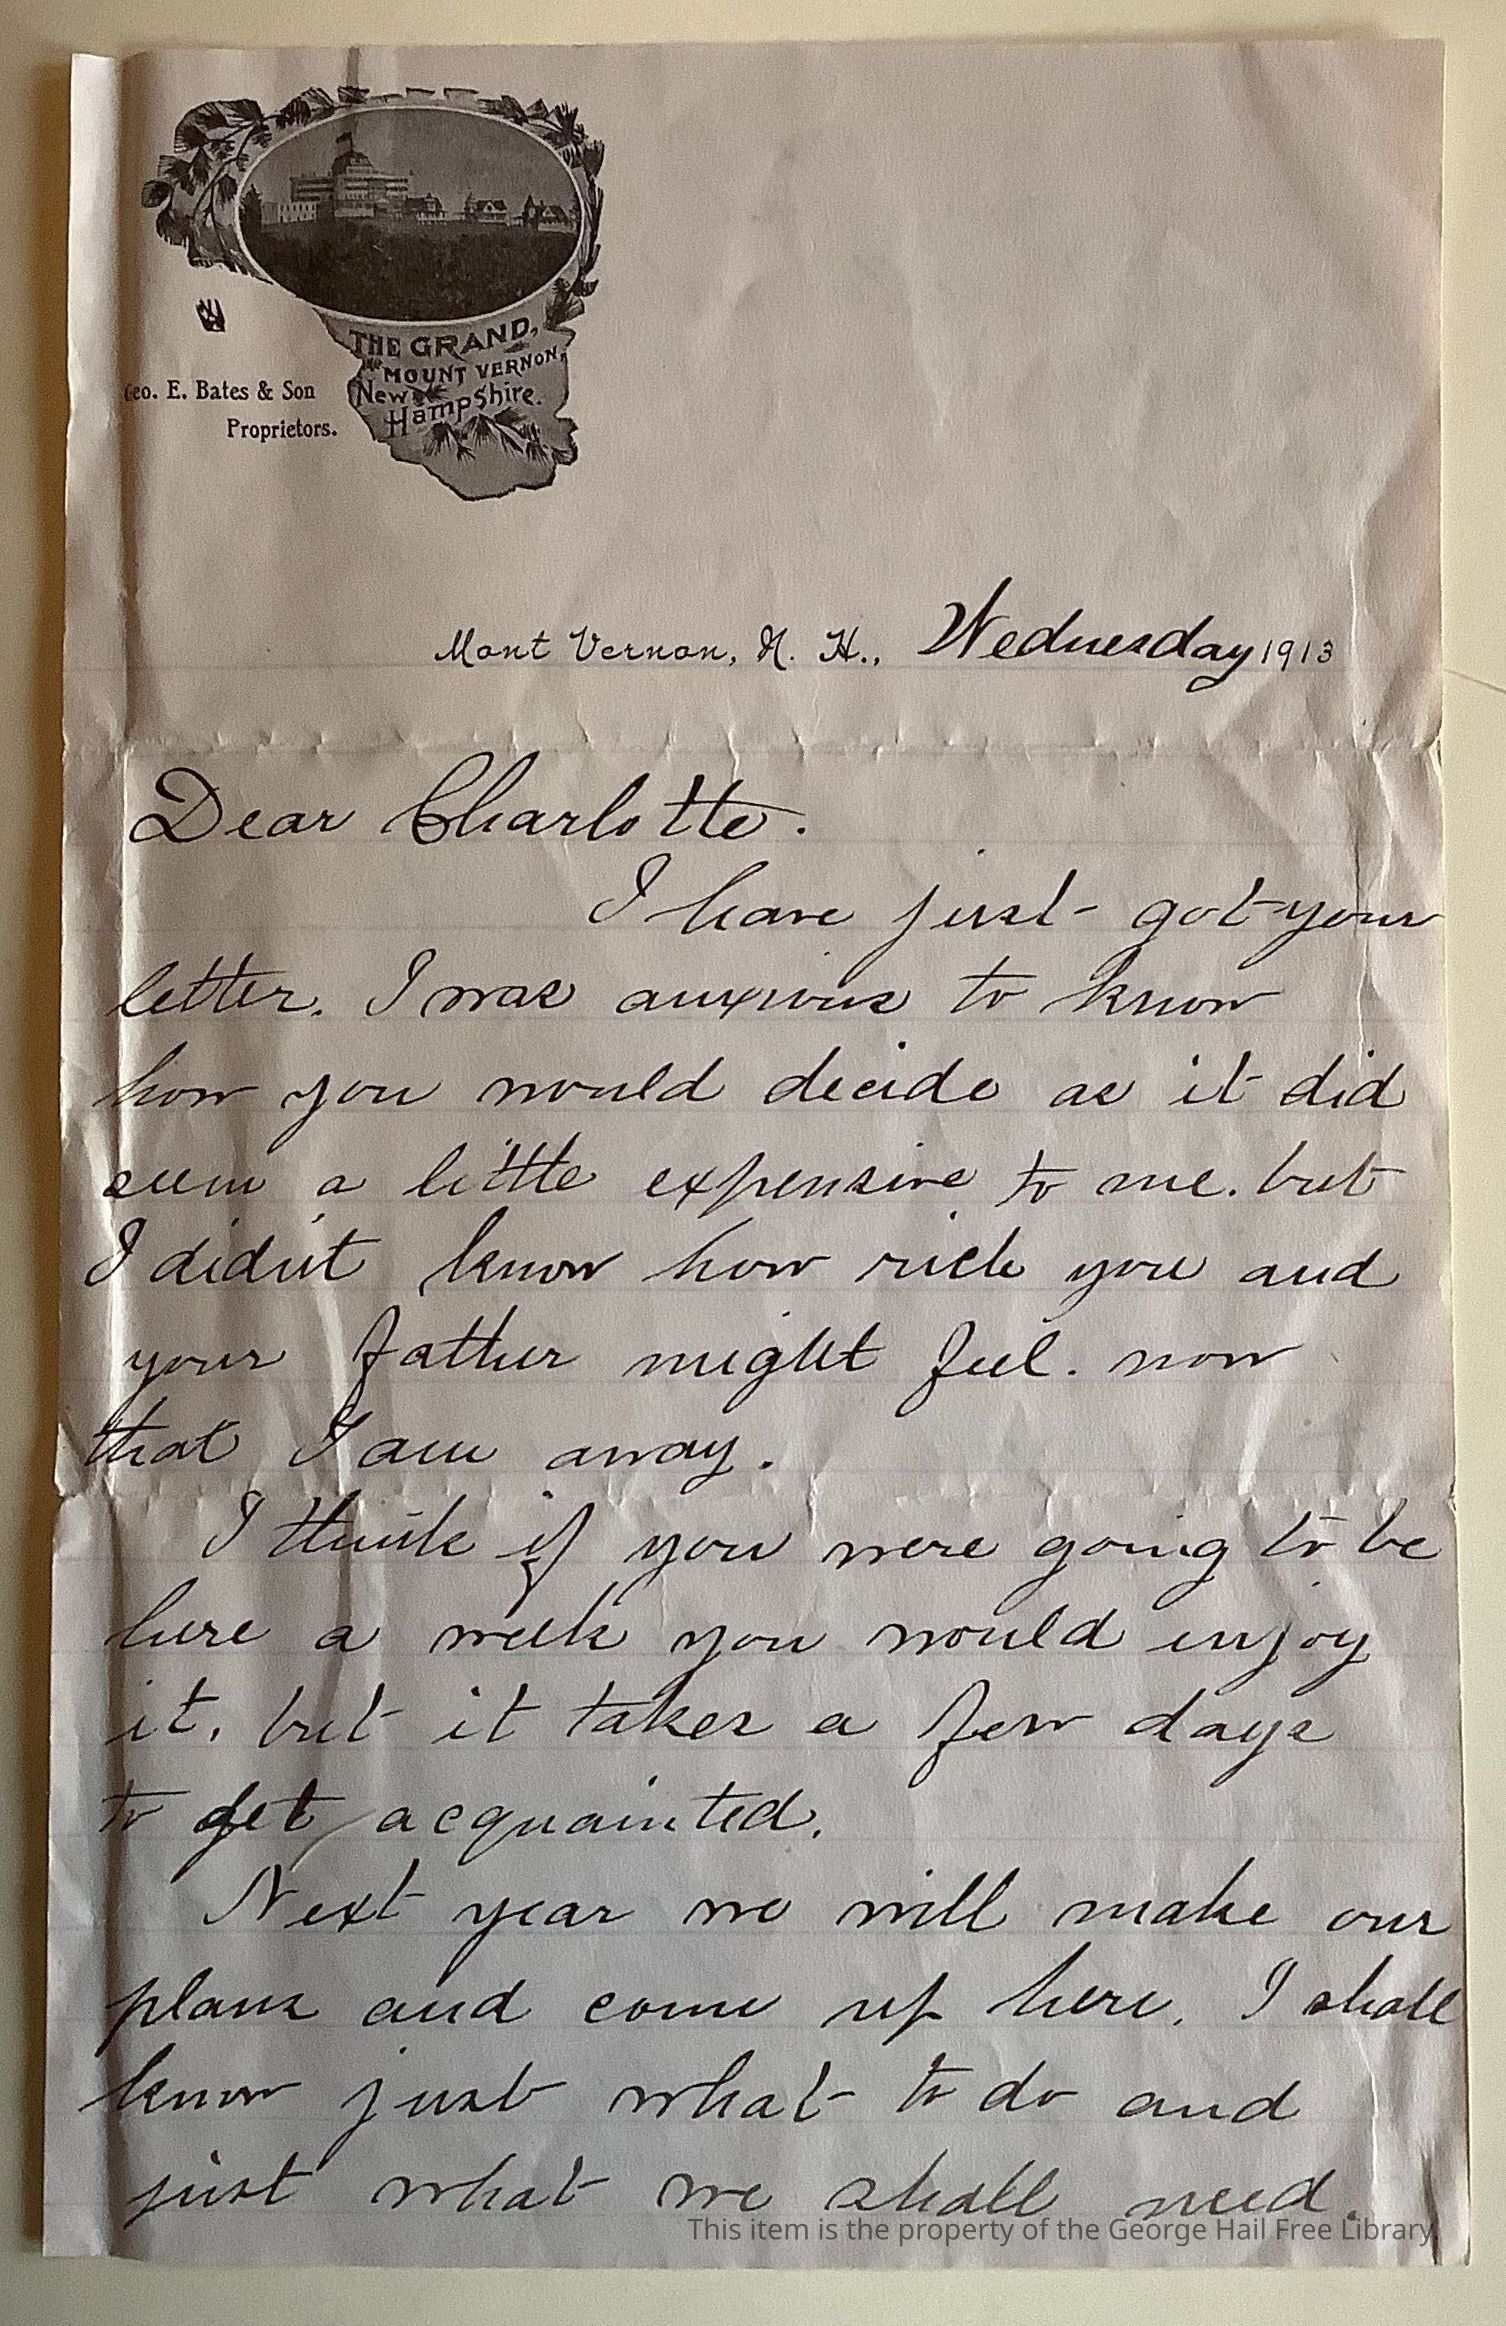 THE GRAND,
MOUNT VERNON,
New
Hampshire.
Geo. E. Bates & Son
Proprietors.
Mont Vernon, N. H., Wednesday 1913
Dear Charlotte.
I have just got your
letter. I was anxious to know
how you would decide as it did
seem a little expensive to me. but
I didn't know how rich you and
your father might feel. now
that I am away.
I think if you were going to be
here a week you would enjoy
it. but it takes a few days
to get acquainted.
Next year we will make our
plans and come up here. I shall
know just what to do and
just what we shall need.
This item is the property of the George Hail Free Library.